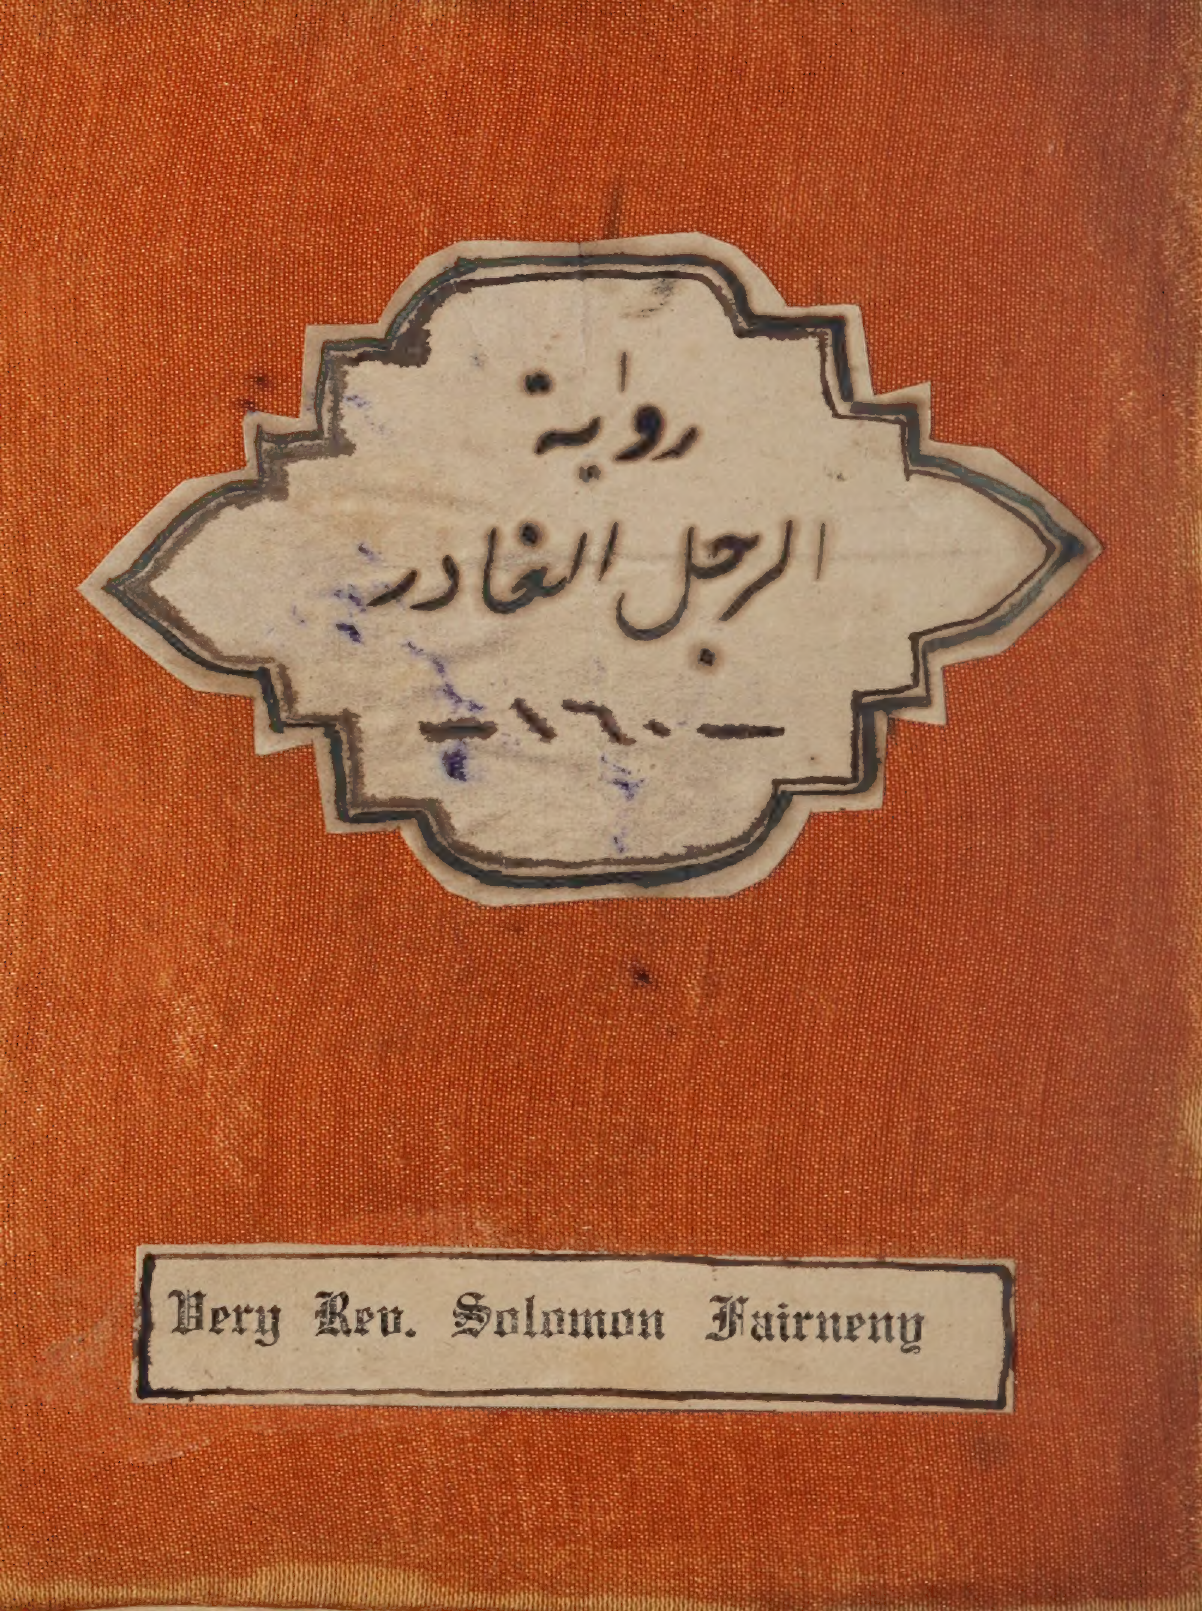 رواية
الرجل الغادر
— ١٦٠ —
Very Rev. Solomon Fairneny